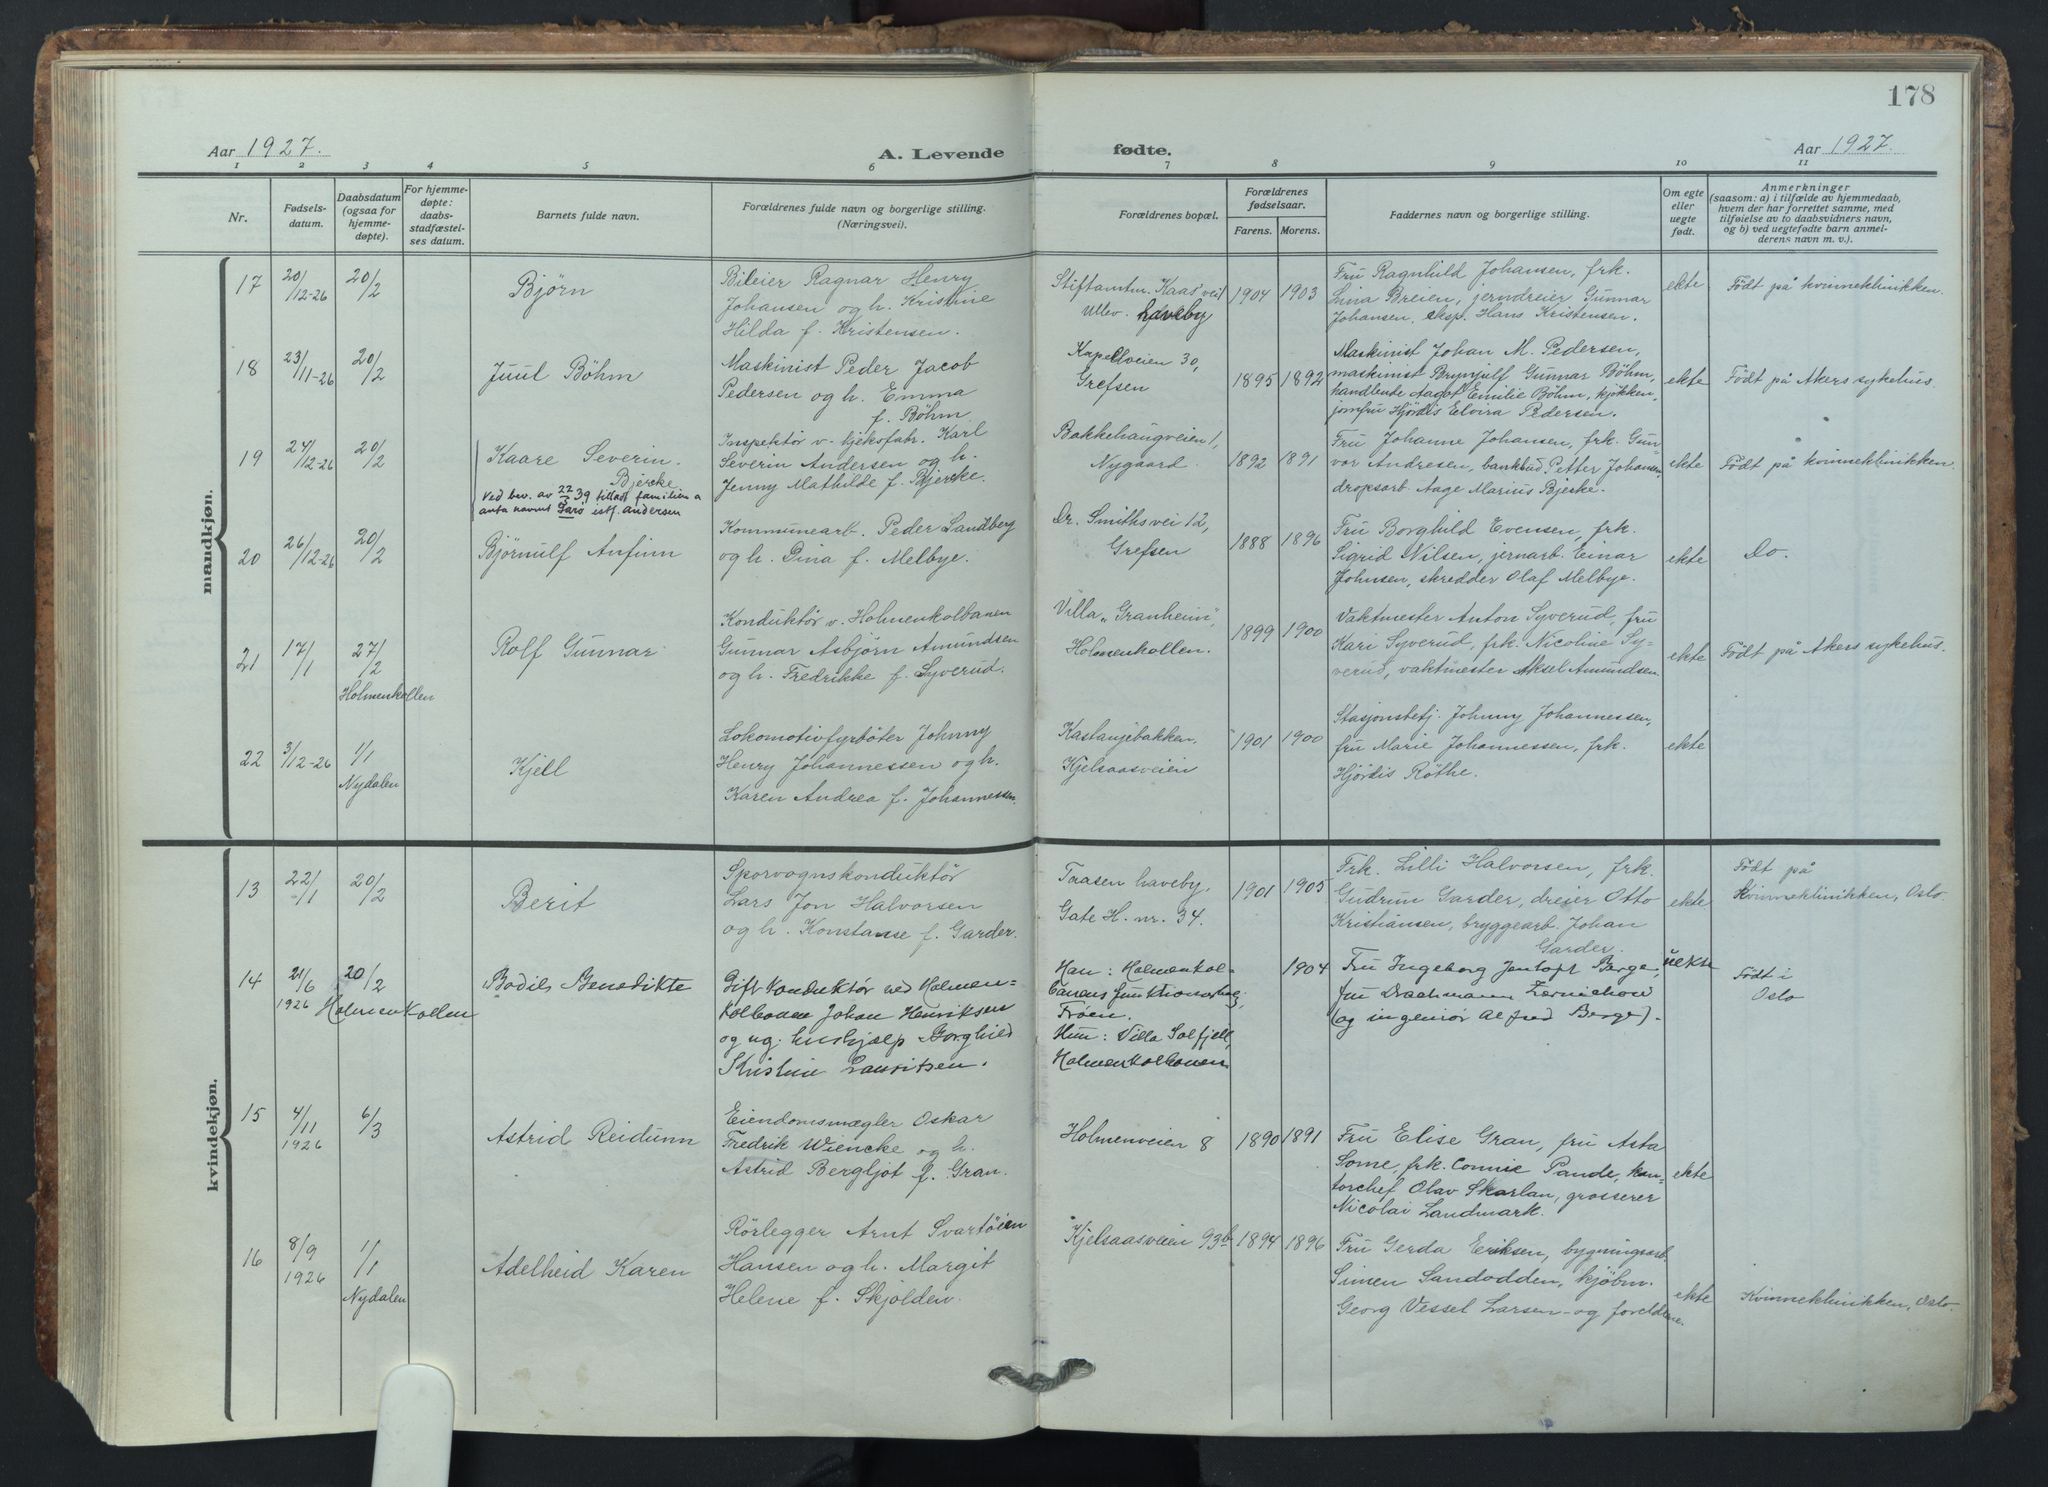 178
Aar 1927.
A. Levende
fødte.
Aar 1927.
1 2 3 4 5 6 7 8 9 10 11
Nr.
Fødsels-
datum.
Daabsdatum
(ogsaa for
hjemme-
døpte).
For hjemme-
døpte:
daabs-
stadfæstel-
ses datum.
Barnets fulde navn.
Forældrenes fulde navn og borgerlige stilling.
(Næringsvei).
Forældrenes bopæl.
Forældrenes
fødselsaar.
Farens. Morens.
Faddernes navn og borgerlige stilling.
Om egte
eller
uegte
født.
Anmerkninger
(saasom: a) i tilfælde av hjemmedaab,
hvem der har forrettet samme, med
tilføielse av to daabsvidners navn,
og b) ved uegtefødte barn anmel-
derens navn m. v.).
mandkjøn.
17
20/12-26
20/2
Bjørn
Bileier Ragnar Henry
Johansen og h. Kristine
Hilda f. Kristensen.
Stiftamtm. Kaas' vei
Ullev. haveby
1904 1903
Fru Ragnhild Johansen, frk.
Lina Breien, jerndreier Gunnar
Johansen, eksp. Hans Kristensen.
ekte
Født på kvinneklinikken.
18
23/11-26
20/2
Juul Böhm
Maskinist Peder Jacob
Pedersen og h. Emma
f. Böhm
Kapellveien 30,
Grefsen
1895 1892
Maskinist Johan M. Pedersen,
maskinist Brynjulf Gunnar Böhm,
handlende Aagot Emilie Böhm, kjøkken-
jomfru Hjørdis Elvira Pedersen.
ekte
Født på Akers sykehus.
19
24/12-26
20/2
Kaare Severin.
Bjercke
Ved bev. av 22/5 39 tillatt familien a
anta navnet Sarø istf. Andersen
Inspektør v. kjeksfabr. Karl
Severin Andersen og h.
Jenny Mathilde f. Bjercke.
Bakkehaugveien 1,
Nygaard.
1892 1891
Fru Johanne Johansen, frk. Gun-
vor Andresen, bankbud Petter Johansen,
dropsarb. Aage Marius Bjerke.
ekte
Født på kvinneklinikken.
20
26/12-26
20/2
Bjørnulf Anfinn
Kommunearb. Peder Sandberg
og h. Dina f. Melbye.
Dr. Smiths vei 12,
Grefsen
1888 1896
Fru Borghild Evensen, frk.
Sigrid Nilsen, jernarb. Einar
Johnsen, skredder Olaf Melbye.
ekte
Do.
21
17/1
27/2
Holmenkollen
Rolf Gunnar
Konduktør v. Holmenkolbanen
Gunnar Asbjørn Amundsen
og h. Fredrikke f. Syverud.
Villa „Granheim",
Holmenkollen.
1899 1900
Vaktmester Anton Syverud, fru
Kari Syverud, frk. Nicoline Sy-
verud, vaktmester Aksel Amundsen.
ekte
Født på Akers sykehus.
22
3/12-26
1/1
Nydalen
Kjell
Lokomotivfyrbøter Johnny
Henry Johannessen og h.
Karen Andrea f. Johannessen.
Kastanjebakken,
Kjelsaasveien
1901 1900
Stasjonsbetj. Johnny Johannessen,
fru Marie Johannessen, frk.
Hjördis Röthe.
ekte
kvindekjøn.
13
22/1
20/2
Berit
Sporvognskonduktør
Lars Jon Halvorsen
og h. Konstanse f. Garder.
Taasen haveby,
Gate H. nr. 34.
1901 1905
Frk. Lilli Halvorsen, frk.
Gudrun Garder, dreier Otto
Kristiansen, bryggearb. Johan
Garder.
ekte
Født på
Kvinneklinikken, Oslo.
14
21/6
1926
20/2
Holmenkollen
Bodil Benedikte
Gift konduktør ved Holmen-
kolbanen Johan Henriksen
og ug. hushjælp Borghild
Kristine Lauritsen.
Han: Holmenkol-
banens funktionærbolig,
Frøen.
Hun: Villa Solfjell,
Holmenkolbanen
1904
Fru Ingeborg Jentoft Berge,
fru Drachmann
(og ingeniør Alfred Berge).
uekte
Født i
Oslo
15
4/11
1926
6/3
Astrid Reidunn
Eiendomsmægler Oskar
Fredrik Wiencke og h.
Astrid Bergljot f. Gran.
Holmenveien 8
1890 1891
Fru Elise Gran, fru Asta
Some, frk. Connie Pande, kon-
torchef Olav Skarlan, grosserer
Nicolai Landmark.
ekte
16
8/9
1926
1/1
Nydalen
Adelheid Karen
Rørlegger Arnt Svartöien
Hansen og h. Margit
Helene f. Skjolden.
Kjelsaasveien 93b
1894 1896
Fru Gerda Eriksen, bygningsarb.
Simen Sandodden, kjøbm.
Georg Vessel Larsen – og foreldrene.
ekte
Kvinneklinikken, Oslo.